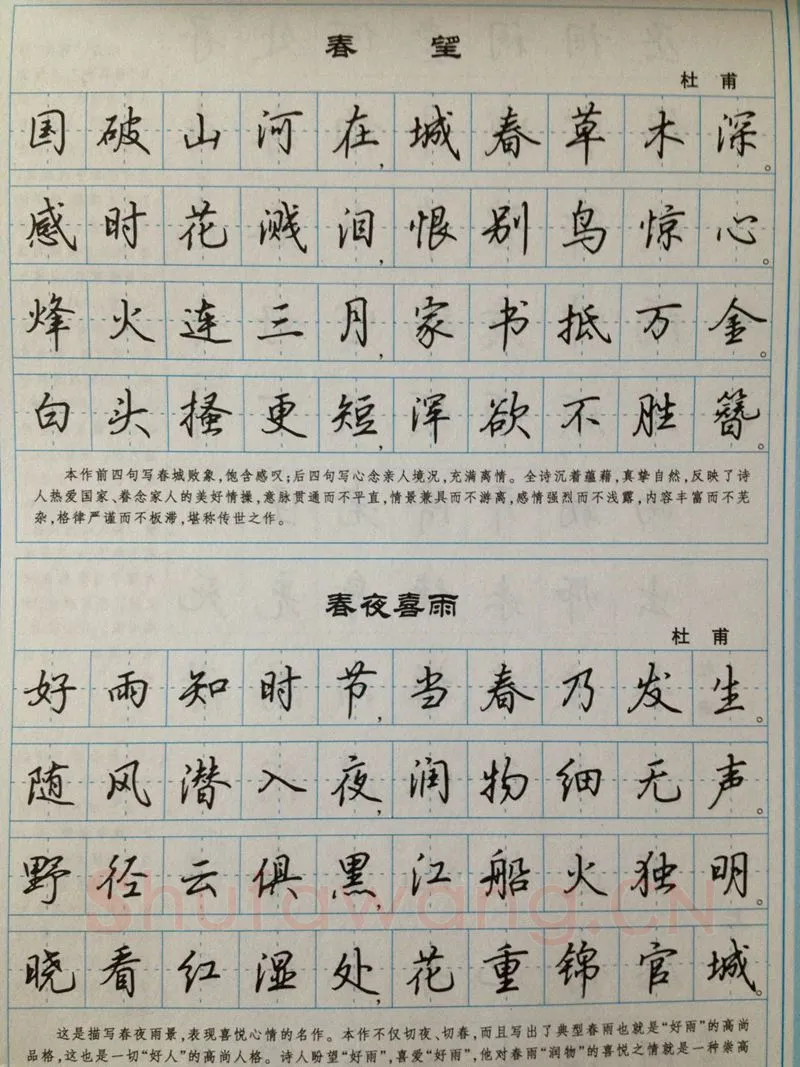 春 望
杜 甫
国破山河在，城春草木深。
感时花溅泪，恨别鸟惊心。
烽火连三月，家书抵万金。
白头搔更短，浑欲不胜簪。
本作前四句写春城败象，饱含感叹；后四句写心念亲人境况，充满离情。全诗沉着蕴藉，真挚自然，反映了诗
人热爱国家、眷念家人的美好情操，意脉贯通而不平直，情景兼具而不游离，感情强烈而不浅露，内容丰富而不芜
杂，格律严谨而不板滞，堪称传世之作。
春夜喜雨
杜 甫
好雨知时节，当春乃发生。
随风潜入夜，润物细无声。
野径云俱黑，江船火独明。
晓看红湿处，花重锦官城。
Shufawang.CN
这是描写春夜雨景，表现喜悦心情的名作。本作不仅切夜、切春，而且写出了典型春雨也就是“好雨”的高尚
品格，这也是一切“好人”的高尚人格。诗人盼望“好雨”，喜爱“好雨”，他对春雨“润物”的喜悦之情就是一种崇高